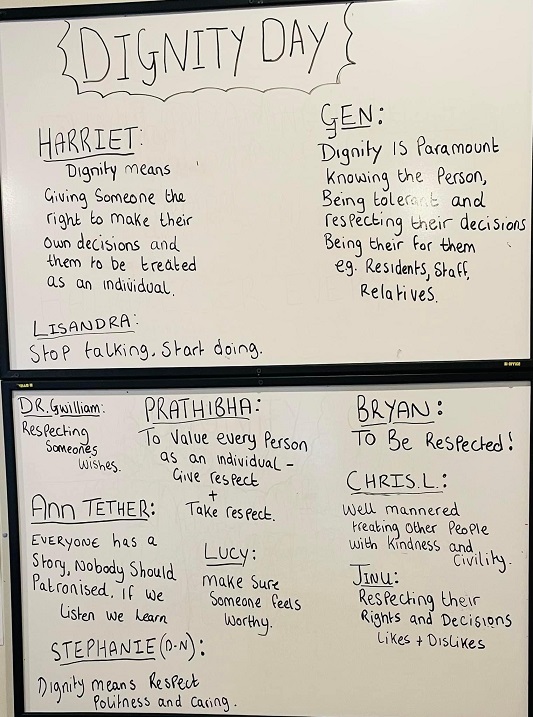 DIGNITY DAY
HARRIET:
Dignity means
Giving Someone the
right to make their
own decisions and
them to be treated
as an individual.
LISANDRA:
Stop talking, Start doing.
GEN:
Dignity IS Paramount
Knowing the Person,
Being tolerant and
respecting their decisions
Being their for them
eg. Residents, Staff,
Relatives.
DR. Gwilliam:
Respecting
Someones
Wishes.
Ann TETHER:
EVERYONE has a
Story, Nobody Should
Patronised. If we
Listen we Learn
STEPHANIE (D-N):
Dignity means Respect
Politness and Caring.
PRATHIBHA:
To Value every Person
as an individual -
Give respect
+
Take respect.
LUCY:
make Sure
Someone feels
Worthy.
BRYAN:
To Be Respected!
CHRIS.L.:
Well mannered
treating Other People
with Kindness and
Civility.
JINU:
Respecting their
Rights and Decisions
Likes + Dislikes